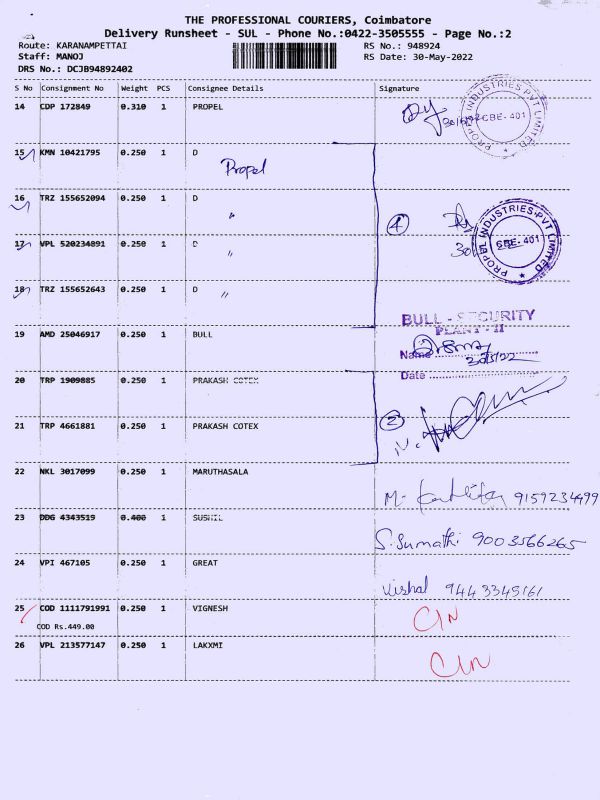 THE PROFESSIONAL COURIERS, Coimbatore
Delivery Runsheet - SUL - Phone No.:0422-3505555 - Page No.:2
Route: KARANAMPETTAI RS No.: 948924
Staff: MANOJ RS Date: 30-May-2022
DRS No.: DCJB94892402
S No Consignment No Weight PCS Consignee Details Signature
14 CDP 172849 0.310 1 PROPEL
PROPEL INDUSTRIES PVT LIMITED CBE-401
15 KMN 10421795 0.250 1 D
Propel
16 TRZ 155652094 0.250 1 D "
17 VPL 520234891 0.250 1 D "
4
PROPEL INDUSTRIES PVT LIMITED CBE-401
18 TRZ 155652643 0.250 1 D "
19 AMD 25046917 0.250 1 BULL
BULL - SECURITY
PLANT - II
Name
30/5/22
Date
20 TRP 1909885 0.250 1 PRAKASH COTEX
21 TRP 4661881 0.250 1 PRAKASH COTEX
2
22 NKL 3017099 0.250 1 MARUTHASALA
9159234499
23 DDG 4343519 0.400 1 SUSHIL
S. Sumathi 9003566265
24 VPI 467105 0.250 1 GREAT
Vishal 9443345161
25 COD 1111791991 0.250 1 VIGNESH
COD Rs.449.00
C/N
26 VPL 213577147 0.250 1 LAKXMI
C/N